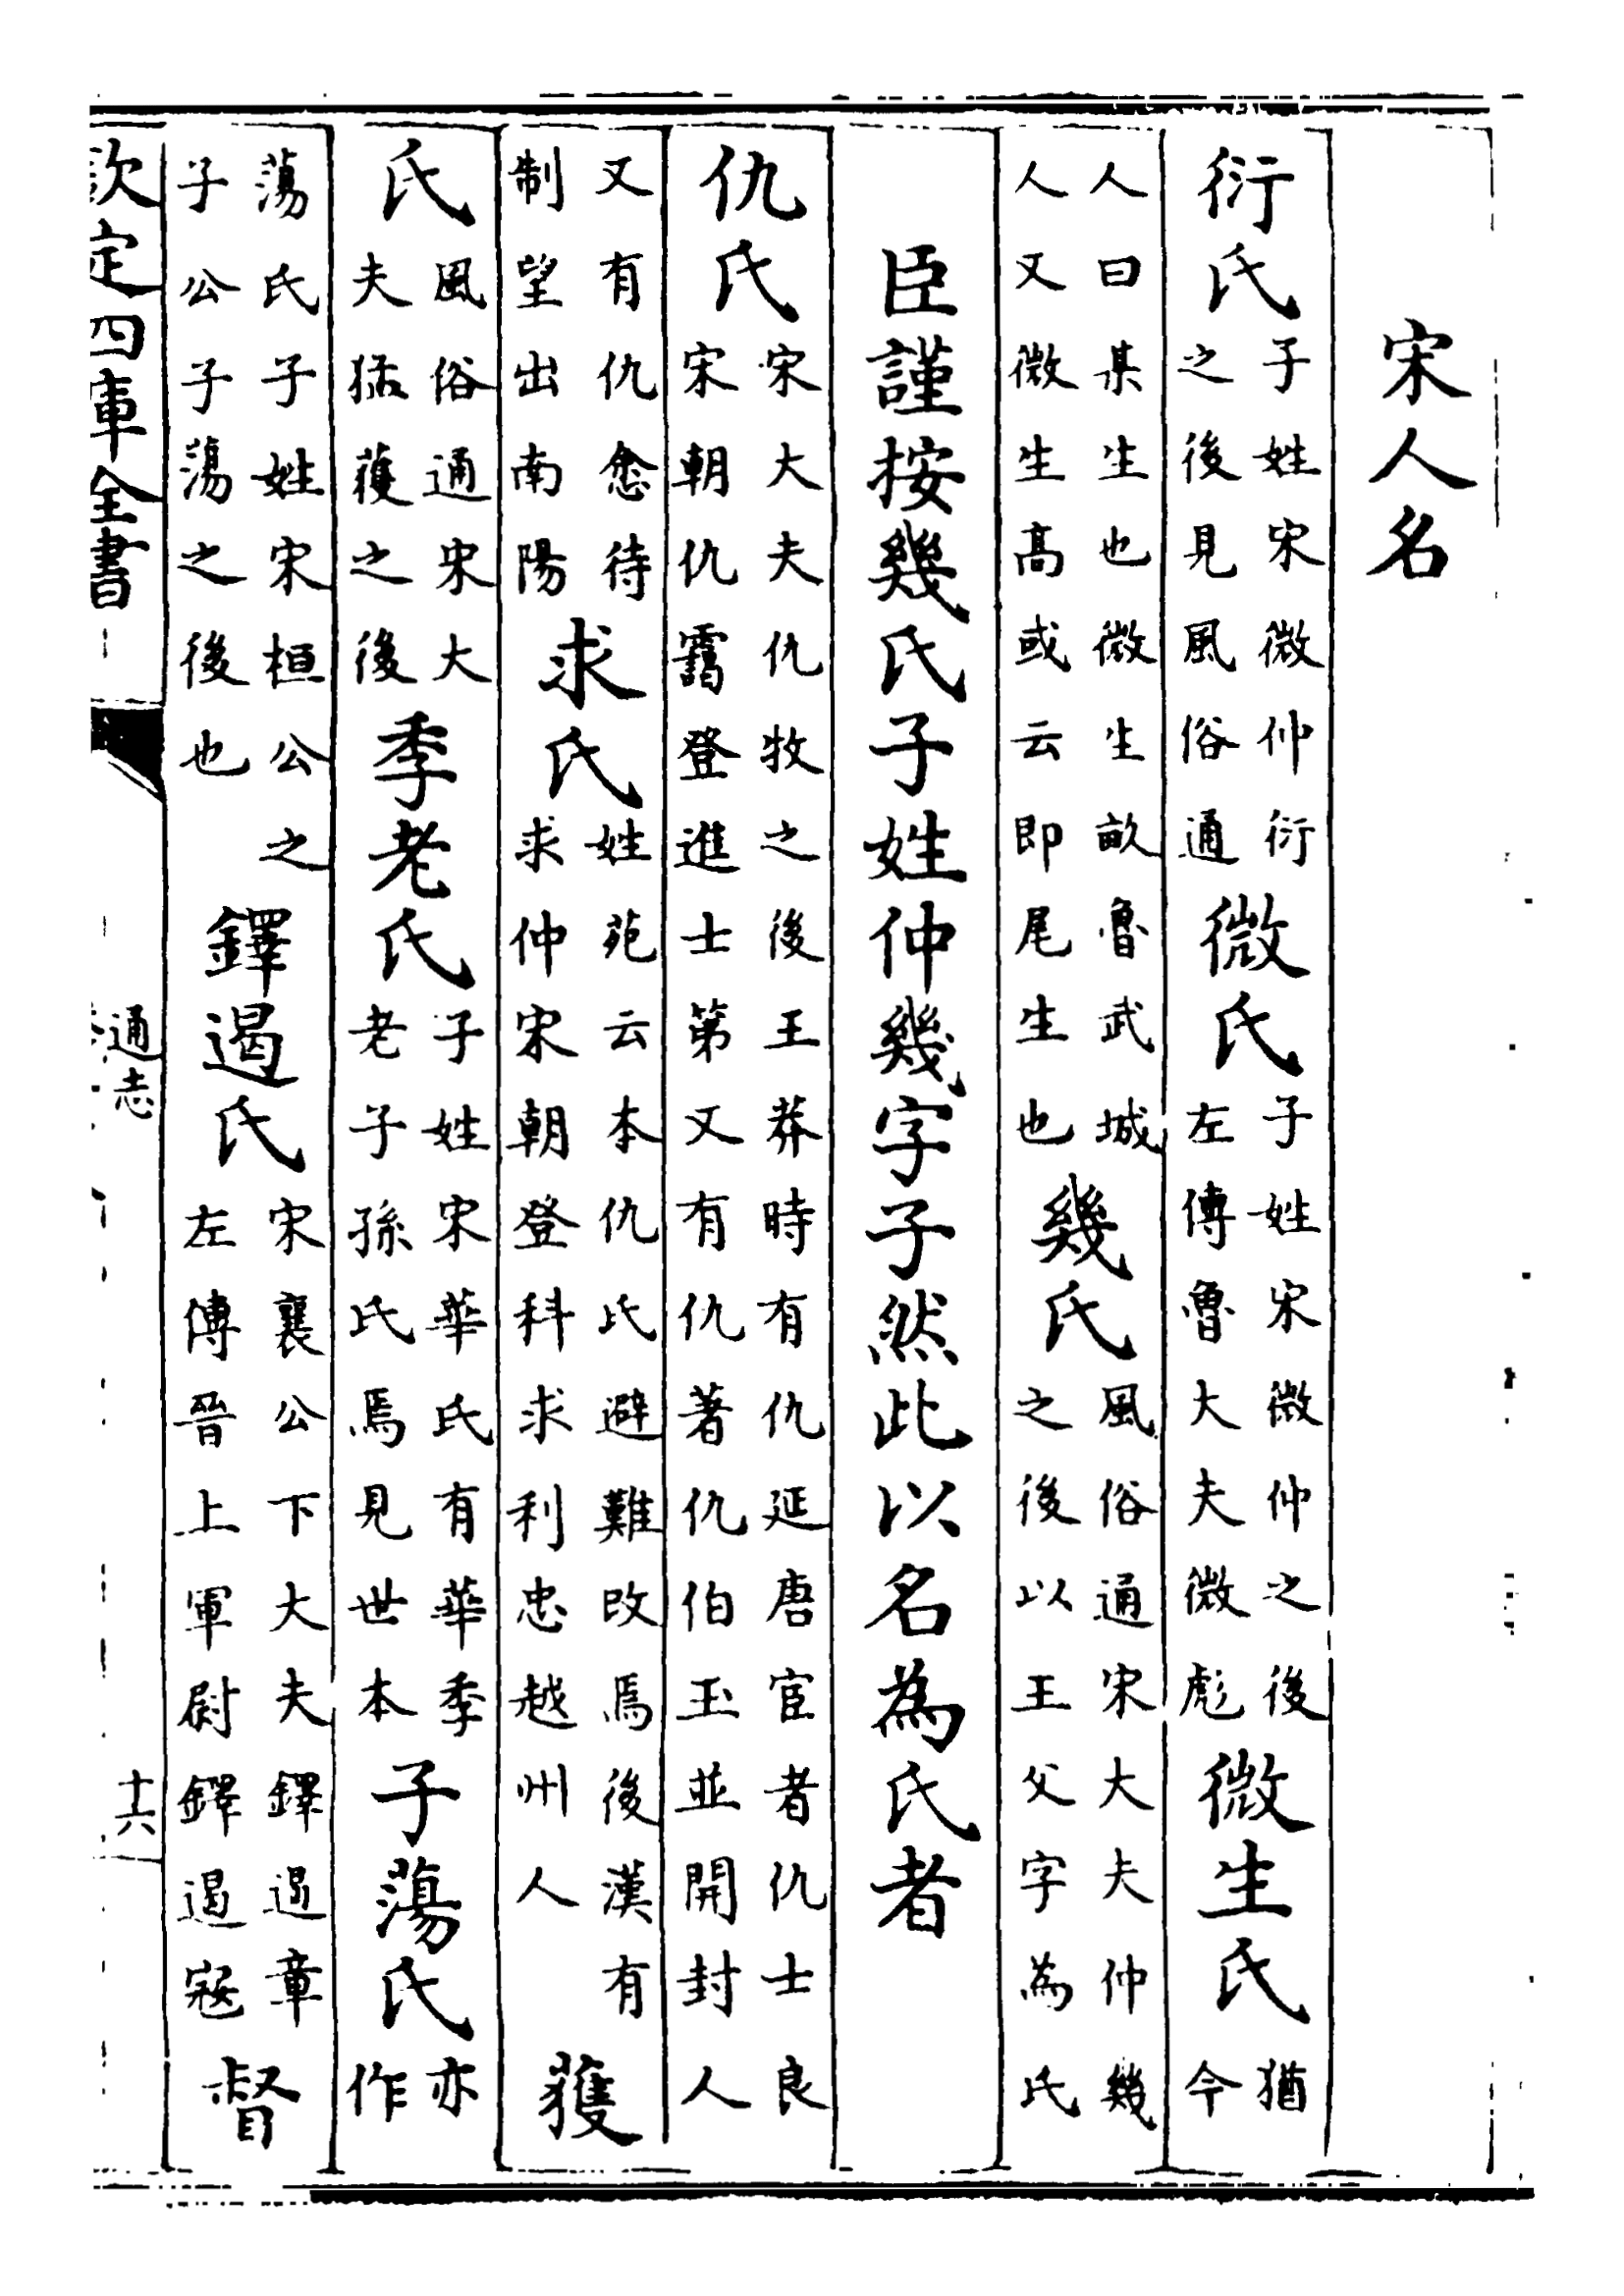 宋人名
衍氏子姓宋微仲衍之後見風俗通微氏子姓宋微仲之後左傳魯大夫微彪微生氏猶今
人曰某生也微生畝魯武城人又微生高或云即尾生也幾氏風俗通宋大夫仲幾之後以王父字為氏
臣謹按幾氏子姓仲幾字子然此以名為氏者
仇氏宋大夫仇牧之後王莽時有仇延唐宦者仇士良宋朝仇靄登進士第又有仇著仇伯玉並開封人
又有仇悆待制望出南陽求氏姓苑云本仇氏避難改焉後漢有求仲宋朝登科求利忠越州人獲
氏風俗通宋大夫猛獲之後季老氏子姓宋華氏有華季老子孫氏焉見世本子蕩氏亦作
蕩氏子姓宋桓公之子公子蕩之後也鐸遏氏宋襄公下大夫鐸遏章左傳晉上軍尉鐸遏寇督
欽定四庫全書
通志
十六